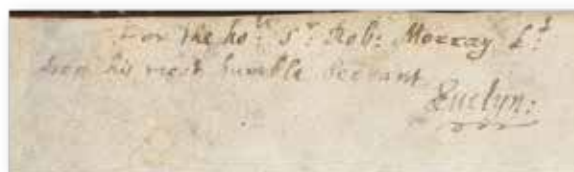 For the ho:ble Sr. Rob: Morray Kt
from his most humble Servant
Euelyn: